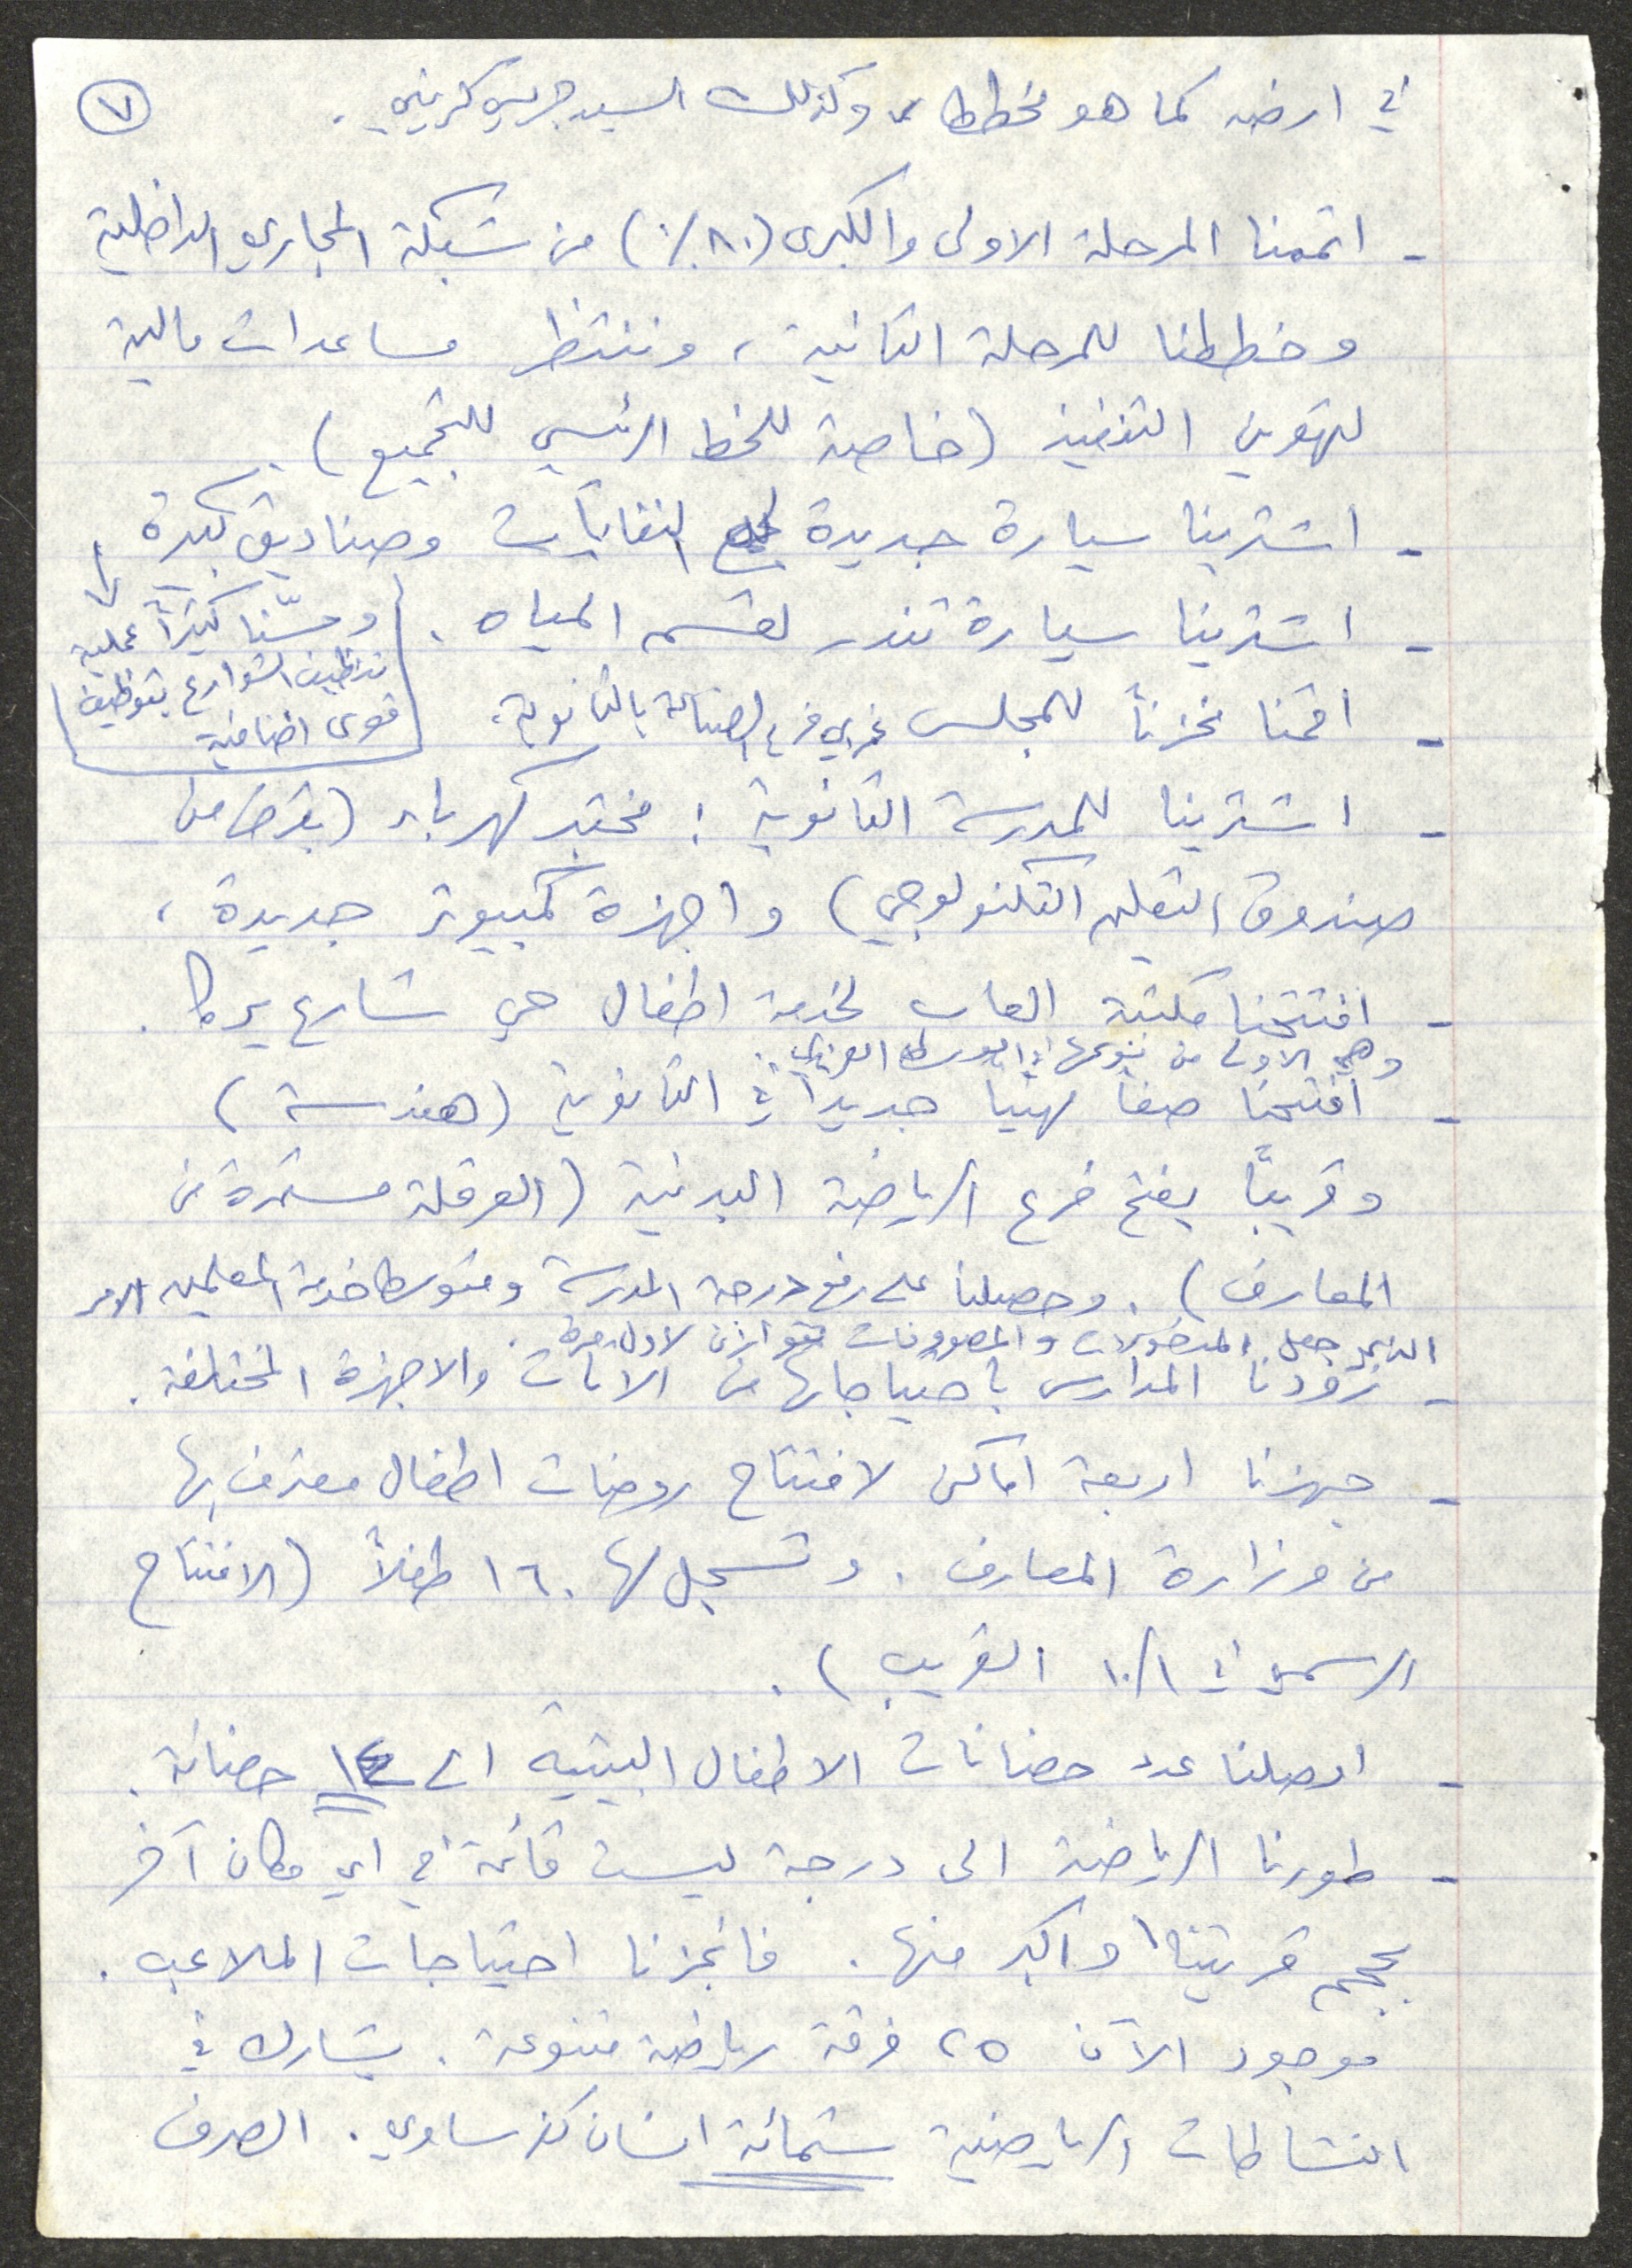 ٧
في ارضه كما هو مخطط، وكذلك السيد جريس كريني.
- اتممنا المرحلة الاولى والكبرى (٨٠٪) من شبكة المجاري الداخلية
وخططنا للمرحلة الثانية، وننتظر مساعدات مالية
لتموين التنفيذ (خاصة للخط الرئيسي للتجميع).
- اشترينا سيارة جديدة لجمع النفايات وصناديق كبيرة
وحسّنا كثيراً عملية
تنظيف الشوارع بتوظيف
قوى اضافية
- اشترينا سيارة تندر لقسم المياه.
- اقمنا مخزناً للمجلس غربي فرع الصناعة بالثانوية.
- اشترينا للمدرسة الثانوية: مختبر كهرباء (بقرض من
صندوق التعليم التكنولوجي) واجهزة كمبيوتر جديدة،
- افتتحنا مكتبة العاب لخدمة اطفال حي شارع يركا.
وهي الاولى من نوعها في الوسط العربي.
- افتتحنا صفاً مهنيا جديداً في الثانوية (هندسة)
وقريباً يفتح فرع الرياضة البدنية (العرقلة مستمرة من
المعارف). وحصلنا على رفع درجة المدرسة ومتوسط خدمة المعلمين الامر
الذي جعل المدخولات والمصروفات تتوازن لاول مرة.
- زودنا المدارس باحتياجاتها من الاثاث والاجهزة المختلفة.
- جهزنا اربعة اماكن لافتتاح روضات اطفال معترف بها
من وزارة المعارف. وتسجل لها ١٦٠ طفلاً (الافتتاح
الرسمي في ١٠/١ القريب).
- اوصلنا عدد حضانات الاطفال البيتية الى ١٤ حضانة.
- طورنا الرياضة الى درجة ليست قائمة في اي مكان آخر
بحجم قريتنا واكبر منها. فانجزنا احتياجات الملاعب.
موجود الآن ٢٥ فرقة رياضة متنوعة. يشارك في
النشاطات الرياضية ستمائة انسان كفرساوي. الصرف